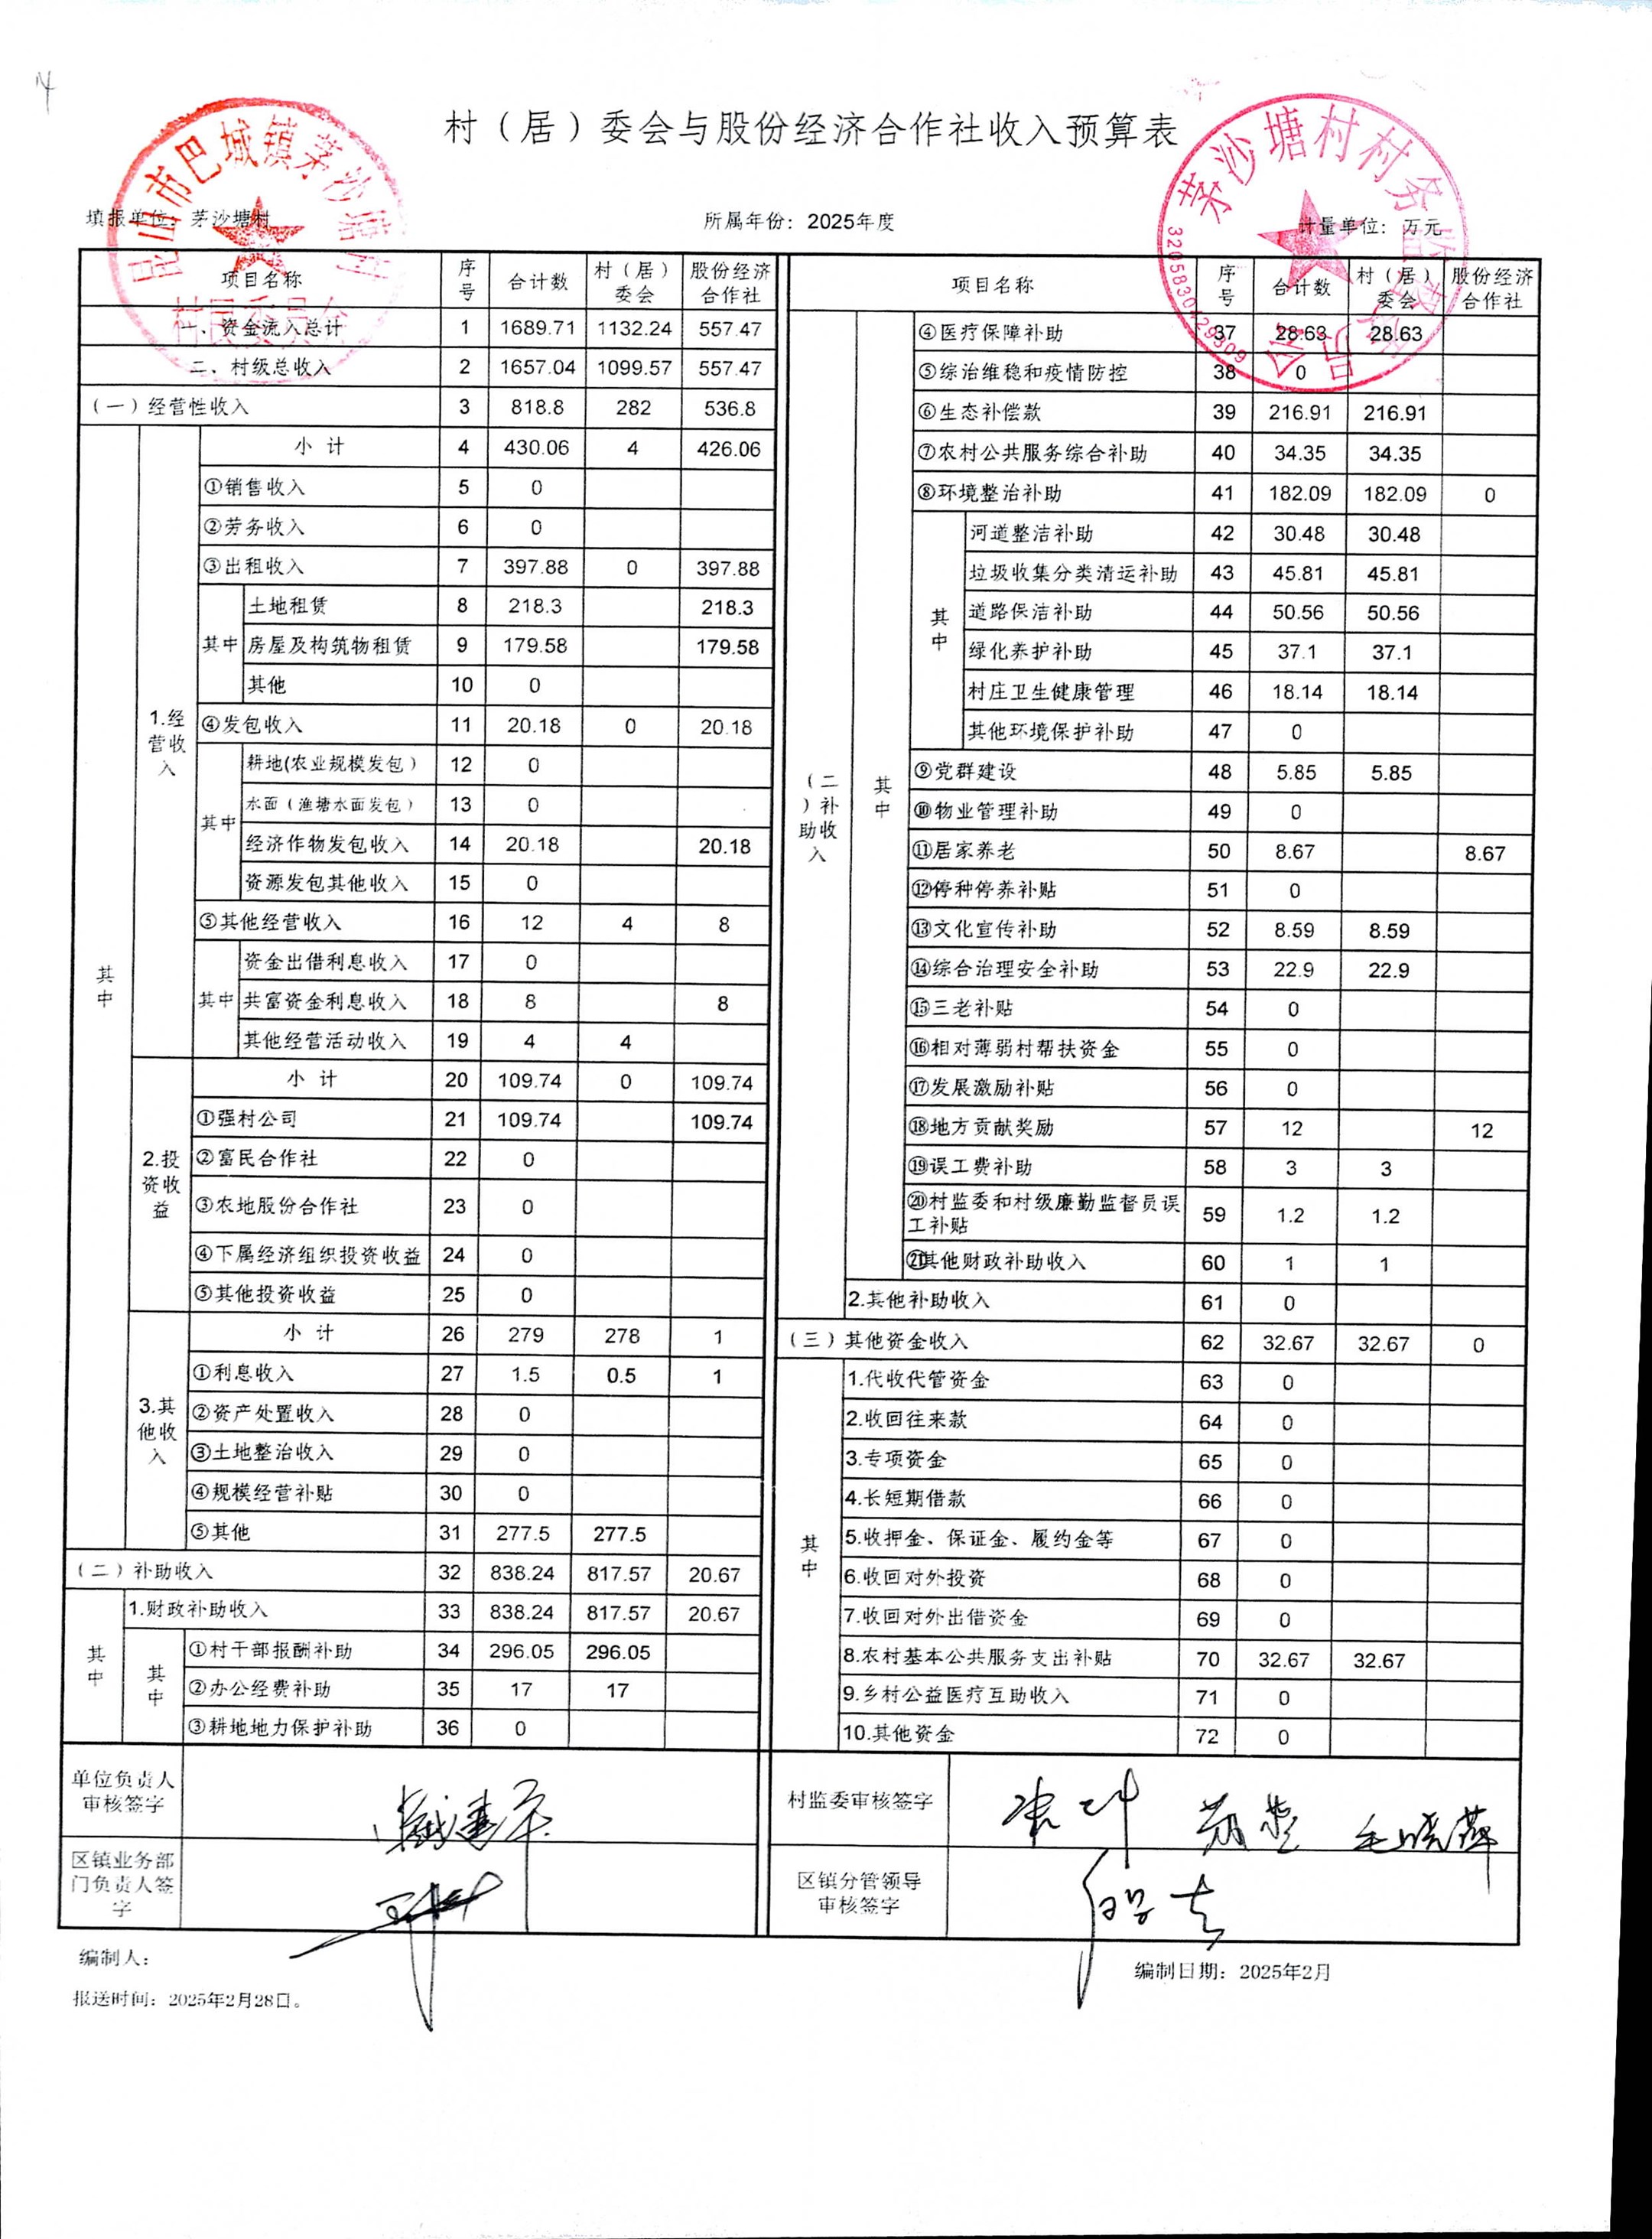 村（居）委会与股份经济合作社收入预算表
填报单位：茅沙塘村 所属年份：2025年度 计量单位：万元
昆山市巴城镇茅沙塘村
村民委员会
茅沙塘村村务监督委员会
项目名称 序号 合计数 村（居）委会 股份经济合作社
一、资金流入总计 1 1689.71 1132.24 557.47
二、村级总收入 2 1657.04 1099.57 557.47
（一）经营性收入 3 818.8 282 536.8
其中
1.经营收入
小 计 4 430.06 4 426.06
①销售收入 5 0
②劳务收入 6 0
③出租收入 7 397.88 0 397.88
其中
土地租赁 8 218.3 218.3
房屋及构筑物租赁 9 179.58 179.58
其他 10 0
④发包收入 11 20.18 0 20.18
其中
耕地(农业规模发包） 12 0
水面（渔塘水面发包） 13 0
经济作物发包收入 14 20.18 20.18
资源发包其他收入 15 0
⑤其他经营收入 16 12 4 8
其中
资金出借利息收入 17 0
共富资金利息收入 18 8 8
其他经营活动收入 19 4 4
2.投资收益
小 计 20 109.74 0 109.74
①强村公司 21 109.74 109.74
②富民合作社 22 0
③农地股份合作社 23 0
④下属经济组织投资收益 24 0
⑤其他投资收益 25 0
3.其他收入
小 计 26 279 278 1
①利息收入 27 1.5 0.5 1
②资产处置收入 28 0
③土地整治收入 29 0
④规模经营补贴 30 0
⑤其他 31 277.5 277.5
（二）补助收入 32 838.24 817.57 20.67
其中
1.财政补助收入 33 838.24 817.57 20.67
其中
①村干部报酬补助 34 296.05 296.05
②办公经费补助 35 17 17
③耕地地力保护补助 36 0
项目名称 序号 合计数 村（居）委会 股份经济合作社
（二）补助收入
其中
④医疗保障补助 37 28.63 28.63
⑤综治维稳和疫情防控 38 0
⑥生态补偿款 39 216.91 216.91
⑦农村公共服务综合补助 40 34.35 34.35
⑧环境整治补助 41 182.09 182.09 0
其中
河道整洁补助 42 30.48 30.48
垃圾收集分类清运补助 43 45.81 45.81
道路保洁补助 44 50.56 50.56
绿化养护补助 45 37.1 37.1
村庄卫生健康管理 46 18.14 18.14
其他环境保护补助 47 0
⑨党群建设 48 5.85 5.85
⑩物业管理补助 49 0
⑪居家养老 50 8.67 8.67
⑫停种停养补贴 51 0
⑬文化宣传补助 52 8.59 8.59
⑭综合治理安全补助 53 22.9 22.9
⑮三老补贴 54 0
⑯相对薄弱村帮扶资金 55 0
⑰发展激励补贴 56 0
⑱地方贡献奖励 57 12 12
⑲误工费补助 58 3 3
⑳村监委和村级廉勤监督员误工补贴 59 1.2 1.2
㉑其他财政补助收入 60 1 1
2.其他补助收入 61 0
（三）其他资金收入 62 32.67 32.67 0
其中
1.代收代管资金 63 0
2.收回往来款 64 0
3.专项资金 65 0
4.长短期借款 66 0
5.收押金、保证金、履约金等 67 0
6.收回对外投资 68 0
7.收回对外出借资金 69 0
8.农村基本公共服务支出补贴 70 32.67 32.67
9.乡村公益医疗互助收入 71 0
10.其他资金 72 0
单位负责人审核签字
村监委审核签字 毛晓萍
区镇业务部门负责人签字
区镇分管领导审核签字
编制人：
编制日期：2025年2月
报送时间：2025年2月28日。